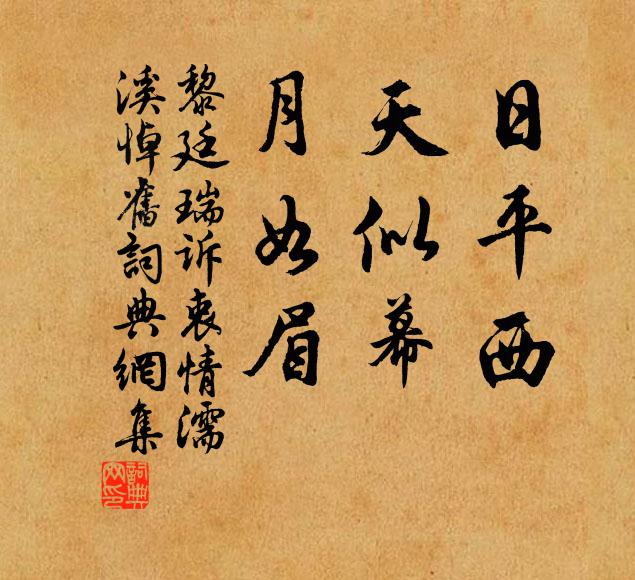 日平西
天似幕
月如眉
黎廷瑞訴衷情濡
溪悼舊詞典網集
詞典
网印